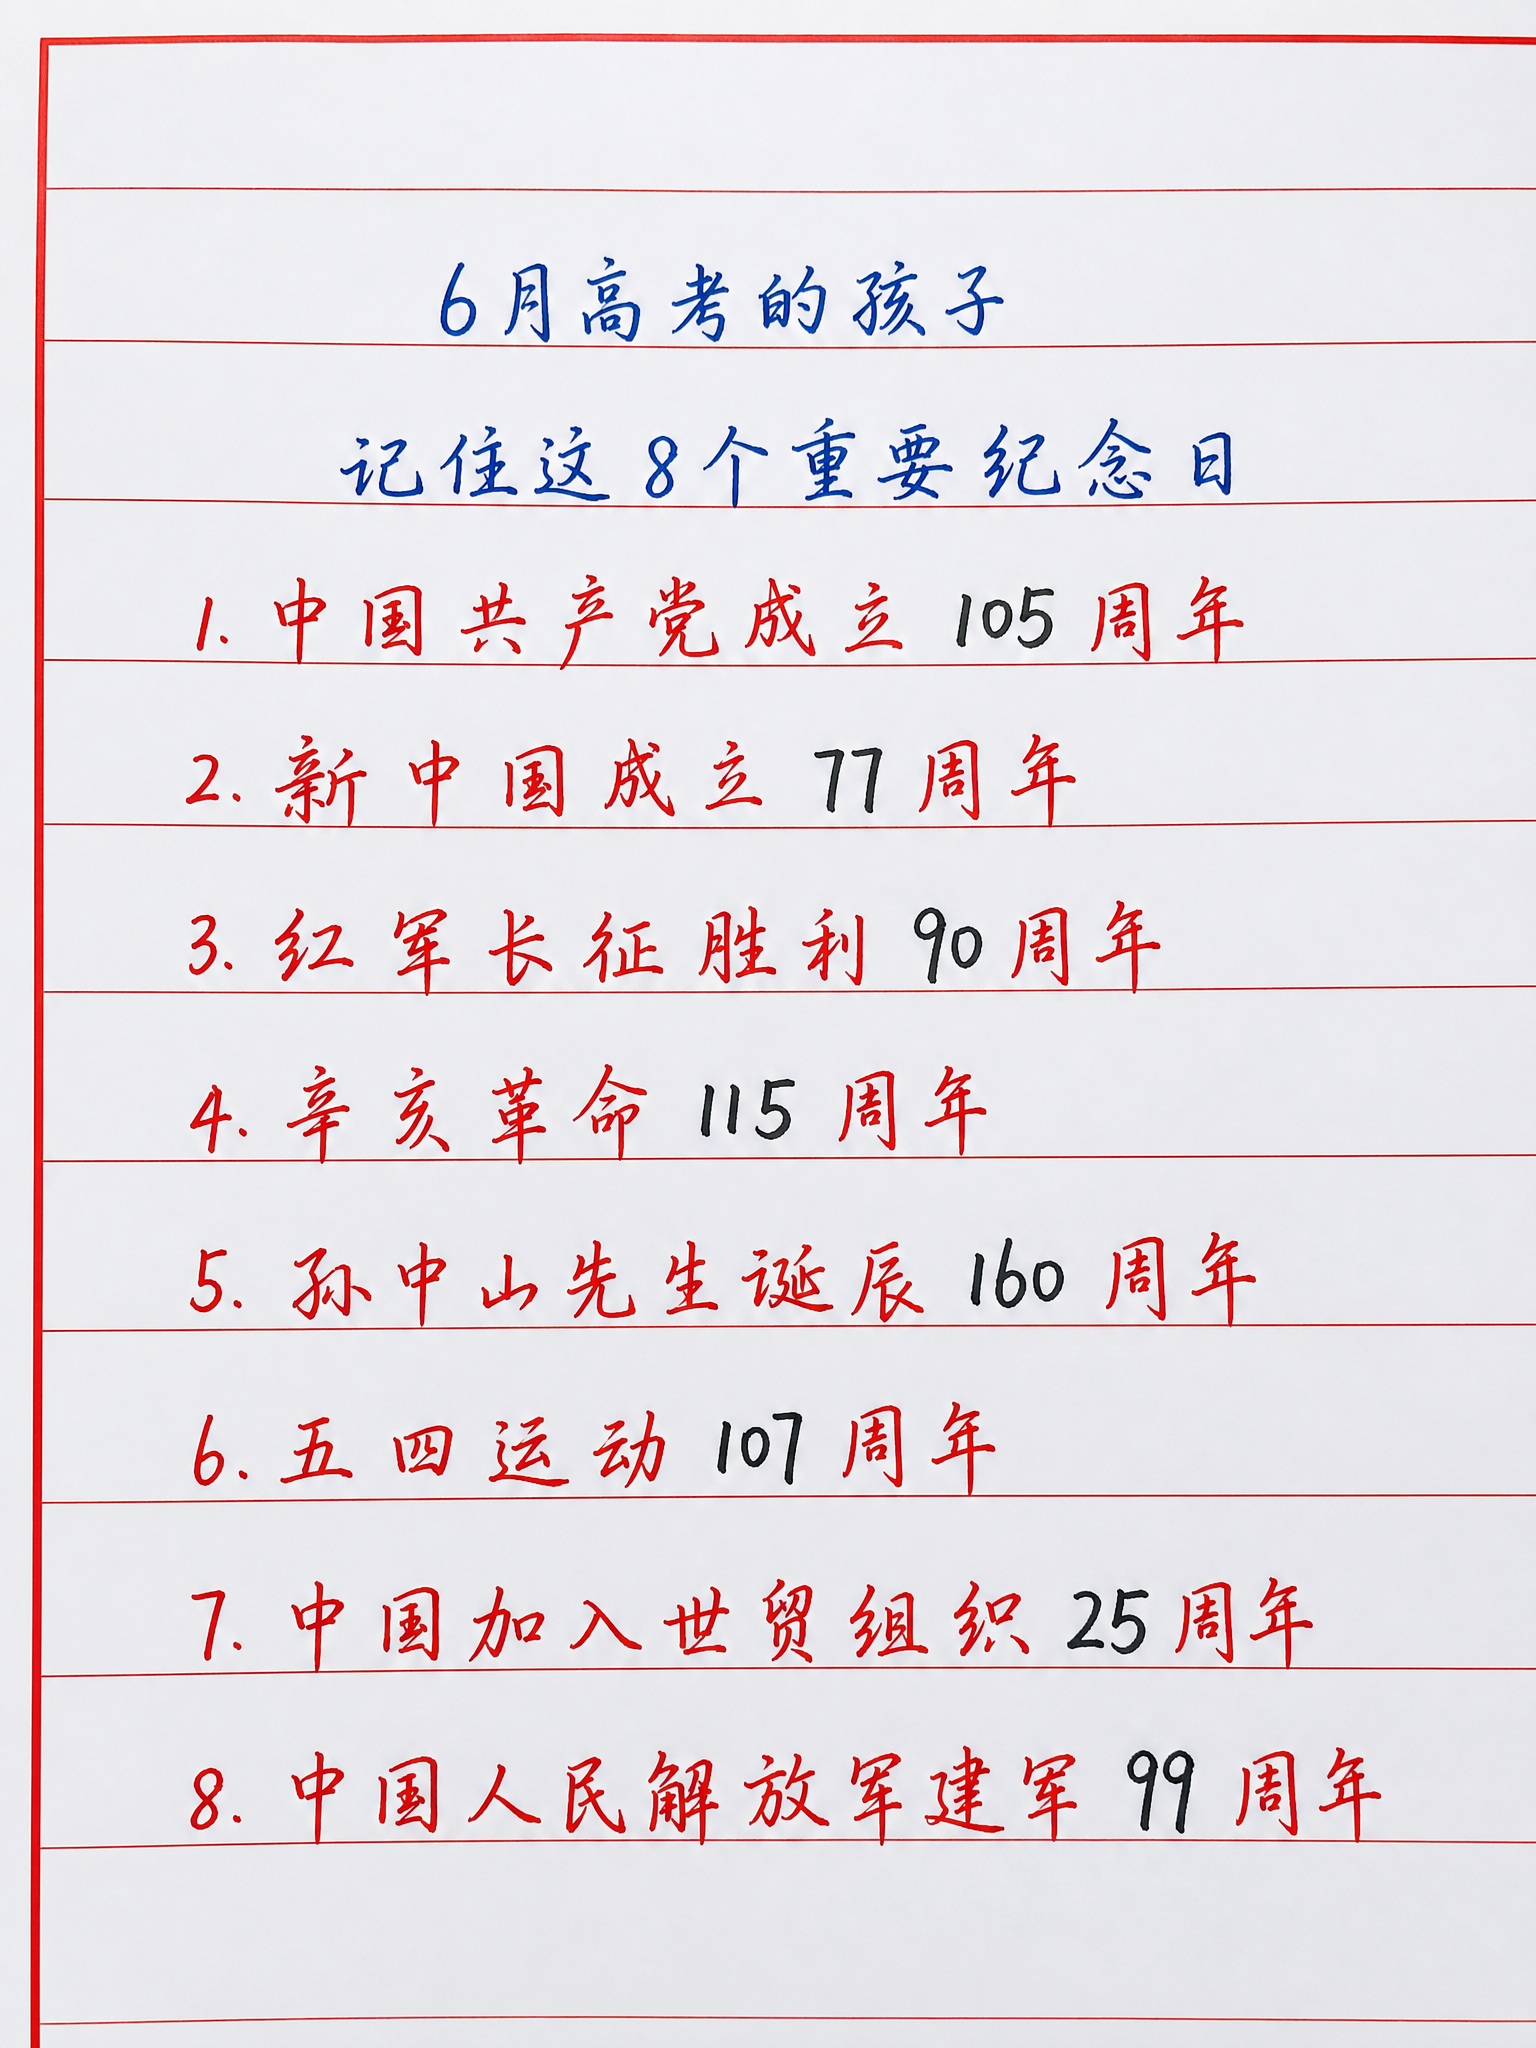 6月高考的孩子
记住这8个重要纪念日
1. 中国共产党成立 105 周年
2. 新中国成立 77 周年
3. 红军长征胜利 90 周年
4. 辛亥革命 115 周年
5. 孙中山先生诞辰 160 周年
6. 五四运动 107 周年
7. 中国加入世贸组织 25 周年
8. 中国人民解放军建军 99 周年